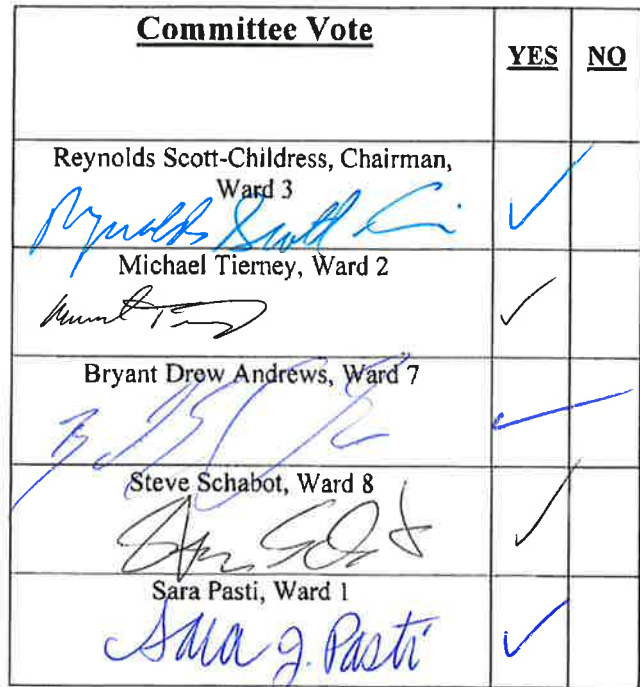 Committee Vote
YES NO
Reynolds Scott-Childress, Chairman,
Ward 3
Reynolds Scott
✓
Michael Tierney, Ward 2
✓
Bryant Drew Andrews, Ward 7
✓
Steve Schabot, Ward 8
✓
Sara Pasti, Ward 1
Sara J. Pasti
✓